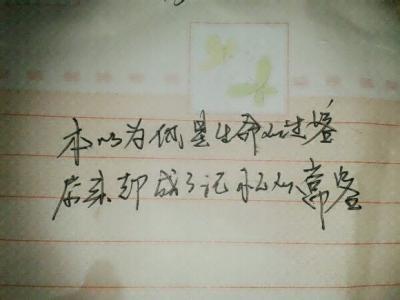 本以为你是生命的过客
后来却成了记忆的常客